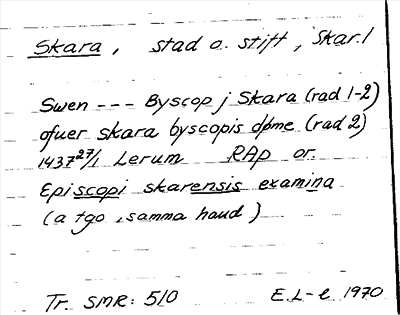 Skara, stad o. stift, Skar. l
Swen --- Byscop j Skara (rad 1-2)
ofuer skara byscopis døme (rad 2)
1437 27/1 Lerum RAp or.
Episcopi skarensis examina
(a tgo, samma hand)
Tr. SMR: 510 E.L-e 1970